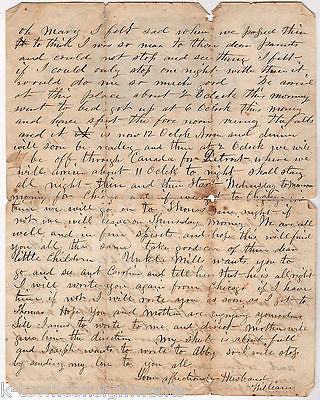 oh Mary I felt sad when we passed thru
to think I was so near to those dear Parents
and could not stop and see them I felt
if I could only stop one night with them it
would do me so much good We arrived
at this place about 2 Oclock this morning
went to bed got up at 6 Oclock this morning
and have spent the fore noon viewing the falls
and it is now 12 Oclock Noon and dinner
will soon be ready and then at 2 Oclock we will
be off through Canada for Detroit where we
will arrive about 11 Oclock to night shall stay
all night then and then Start Wednesday tomorrow
morning for Chicago and if we arrive to Chicago in
time we will go on to Thomas same night if
not we will leave on Thursday Morning We are all
well and in fair spirits and hope this will find
you all the same take good care of those dear
little Children Unkle Mill wants you to
go and see Aunt Caroline and tell her that he is all right
I will write you again from Chicago if I have
time if not I will write you as soon as I get to
Thomas Hope You and Mother are enjoying yourselves
Tell James to write to me and direct Mother will
give him the direction My Sheet is about full
and Joseph wants to write to Abby so I will stop
by sending my love to you all
Your affectionate Husband
William